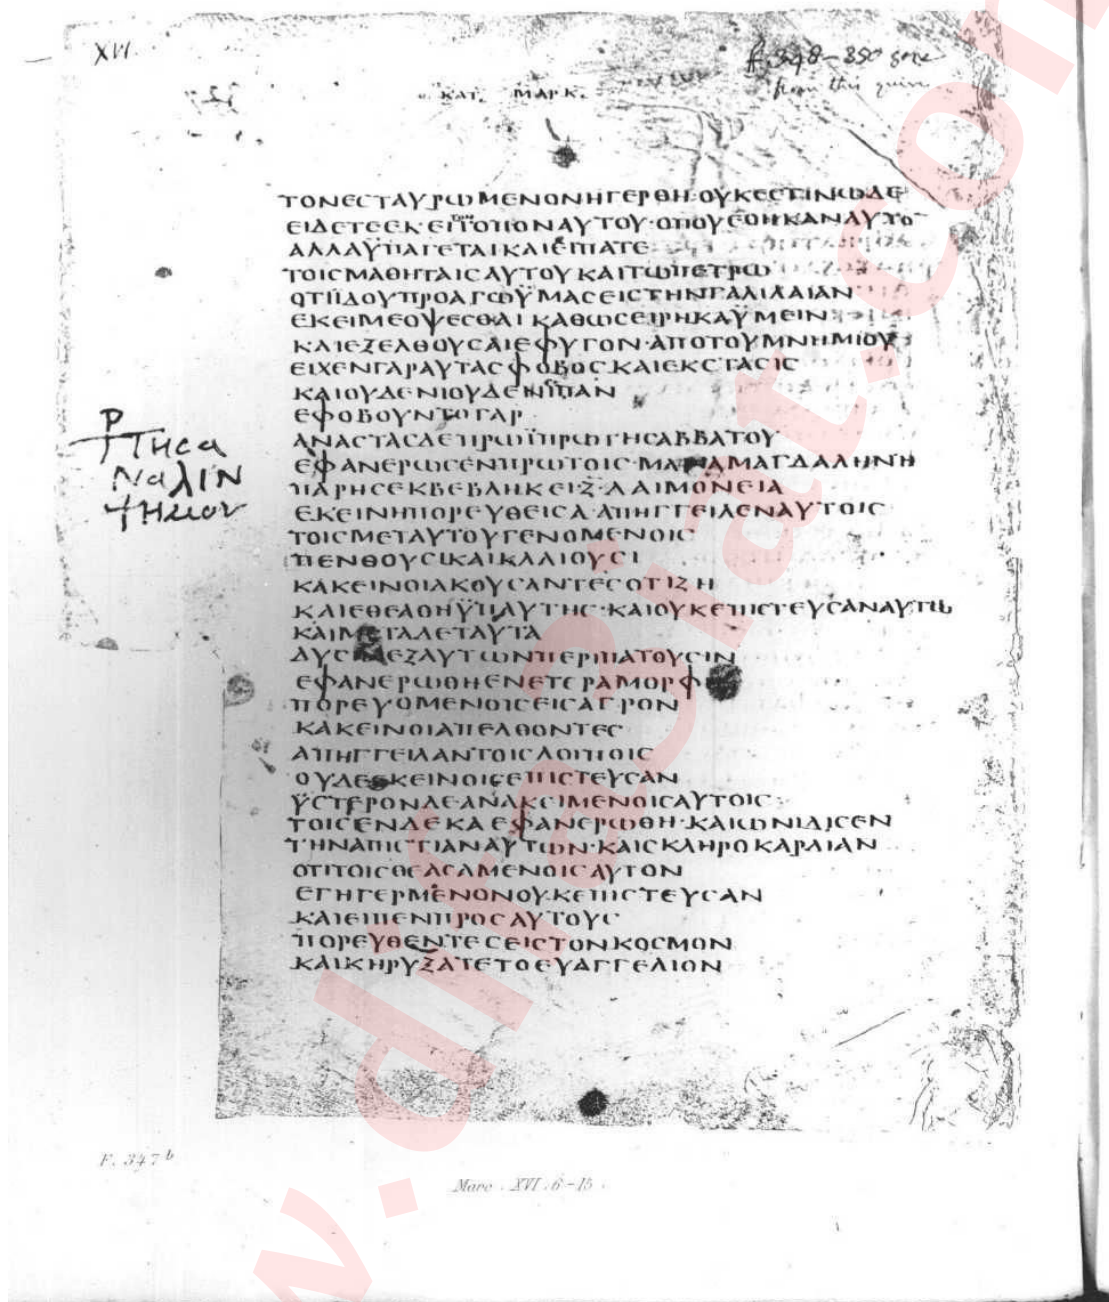 XVI
ff. 348-350 gone
from this quire
ΚΑΤ. ΜΑΡΚ.
ΤΟΝΕΣΤΑΥΡΩΜΕΝΟΝΗΓΕΡΘΗ·ΟΥΚΕΣΤΙΝΩΔΕ
ΕΙΔΕΤΕΕΚΕΙΤΟΠΟΝΑΥΤΟΥ·ΟΠΟΥΕΘΗΚΑΝΑΥΤΟ
ΑΛΛΑΫΠΑΓΕΤΑΙΚΑΙΕΙΠΑΤΕ
ΤΟΙΣΜΑΘΗΤΑΙΣΑΥΤΟΥΚΑΙΤΩΠΕΤΡΩ
ΟΤΙΪΔΟΥΠΡΟΑΓΩΫΜΑΣΕΙΣΤΗΝΓΑΛΙΛΑΙΑΝ
ΕΚΕΙΜΕΟΨΕΣΘΑΙΚΑΘΩΣΕΙΡΗΚΑΫΜΕΙΝ
ΚΑΙΕΞΕΛΘΟΥΣΑΙΕΦΥΓΟΝ·ΑΠΟΤΟΥΜΝΗΜΙΟΥ
ΕΙΧΕΝΓΑΡΑΥΤΑΣΦΟΒΟΣΚΑΙΕΚΣΤΑΣΙΣ
ΚΑΙΟΥΔΕΝΙΟΥΔΕΝΕΙΠΑΝ
ΕΦΟΒΟΥΝΤΟΓΑΡ
ΑΝΑΣΤΑΣΔΕΠΡΩΪΠΡΩΤΗΣΑΒΒΑΤΟΥ
ΕΦΑΝΕΡΩΣΕΝΠΡΩΤΟΙΣ·ΜΑΡΙΑΜΑΓΔΑΛΗΝΗ
ΠΑΡΗΣΕΚΒΕΒΛΗΚΕΙΖ·ΔΑΙΜΟΝΕΙΑ
ΕΚΕΙΝΗΠΟΡΕΥΘΕΙΣΑ·ΑΠΗΓΓΕΙΛΕΝΑΥΤΟΙΣ
ΤΟΙΣΜΕΤΑΥΤΟΥΓΕΝΟΜΕΝΟΙΣ
ΠΕΝΘΟΥΣΙΚΑΙΚΛΑΙΟΥΣΙ
ΚΑΚΕΙΝΟΙΑΚΟΥΣΑΝΤΕΣΟΤΙΖΗ
ΚΑΙΕΘΕΑΘΗΫΠΑΥΤΗΣ·ΚΑΙΟΥΚΕΠΙΣΤΕΥΣΑΝΑΥΤΩ
ΚΑΙΜΕΤΑΔΕΤΑΥΤΑ
ΔΥΣΙΝΕΞΑΥΤΩΝΠΕΡΙΠΑΤΟΥΣΙΝ
ΕΦΑΝΕΡΩΘΗΕΝΕΤΕΡΑΜΟΡΦΗ
ΠΟΡΕΥΟΜΕΝΟΙΣΕΙΣΑΓΡΟΝ
ΚΑΚΕΙΝΟΙΑΠΕΛΘΟΝΤΕΣ
ΑΠΗΓΓΕΙΛΑΝΤΟΙΣΛΟΙΠΟΙΣ
ΟΥΔΕΕΚΕΙΝΟΙΣΕΠΙΣΤΕΥΣΑΝ
ΫΣΤΕΡΟΝΔΕΑΝΑΚΕΙΜΕΝΟΙΣΑΥΤΟΙΣ
ΤΟΙΣΕΝΔΕΚΑΕΦΑΝΕΡΩΘΗ·ΚΑΙΩΝΙΔΙΣΕΝ
ΤΗΝΑΠΙΣΤΙΑΝΑΥΤΩΝ·ΚΑΙΣΚΛΗΡΟΚΑΡΔΙΑΝ
ΟΤΙΤΟΙΣΘΕΑΣΑΜΕΝΟΙΣΑΥΤΟΝ
ΕΓΗΓΕΡΜΕΝΟΝΟΥΚΕΠΙΣΤΕΥΣΑΝ
ΚΑΙΕΙΠΕΝΠΡΟΣΑΥΤΟΥΣ
ΠΟΡΕΥΘΕΝΤΕΣΕΙΣΤΟΝΚΟΣΜΟΝ
ΚΑΙΚΗΡΥΞΑΤΕΤΟΕΥΑΓΓΕΛΙΟΝ
F. 347b
Marc. XVI. 6-15.